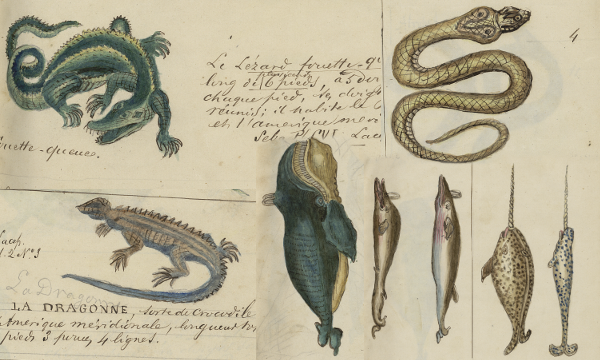 4
Le Lézard fouette-qu
long de plusieurs pieds, a 5 doi
chaque pied, les doigts
réunis; il habite le C
et l'amerique meri
Seba Pl CVI. Lac
ouette-queue.
Lacep.
t. 2. N° 1
La Dragonne
LA DRAGONNE, sorte de Crocodile
Amerique meridionale, longueur
pieds 3 pouces, 4 lignes.